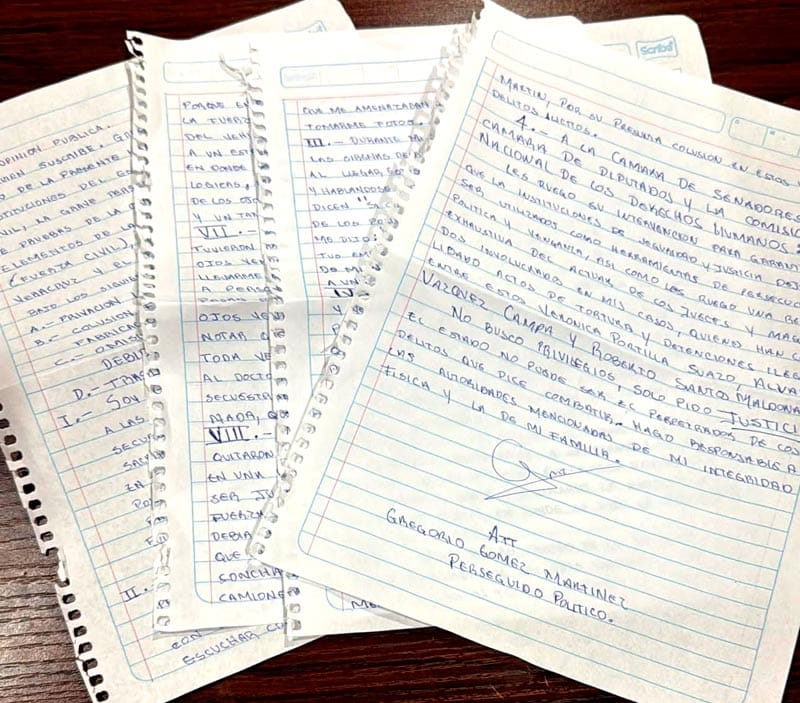 OPINION PUBLICA.
QUIEN SUSCRIBE, GR
DE LA PRESENTE
INSTITUCIONES DEL ES
CIVIL, LA GRAVE
DE PRUEBAS DE LA
ELEMENTOS DE LO
(FUERZA CIVIL),
VERACRUZ Y EL
BAJO LOS SIGUIE
A.- PRIVACION
B.- COLUSION
FABRICA
C.- OMISIO
DEBID
D.- TRA
I.- SOY
A LAS
SECU
EN
II.-
CON
ESCUCHAR CO
PORQUE EN
LA FUERZ
DEL VEH
A UN EST
EN DONDE
LOGICAS,
DE LOS OJO
Y UN TAT
VII.-
TUVIERON
OJOS VE
LLEVARME
A PERSO
OJOS VE
NOTAR
TODA VE
AL DOCTO
SECUESTR
NADA, Q
VIII.-
QUITARON
EN UNA
SER JU
FUERZA
DEBIA
QUE
CONCHA
CAMIONE
QUE ME AMENAZABAN
TOMARME FOTOS
III.- DURANTE
LAS SIRENAS DE
AL LLEGAR
Y HABLANDOSE
DICEN "SI
DE LOS DO
ME DIJO:
DE MI
A UN
IV
Y
Scribe
MARTIN, POR SU PRESUNTA COLUSION EN ESTOS
DELITOS ILICITOS.
4.- A LA CAMARA DE SENADORES
CAMARA DE DIPUTADOS Y LA COMISIO
NACIONAL DE LOS DERECHOS HUMANOS:
LES RUEGO SU INTERVENCION PARA GARANTI
QUE LA INSTITUCIONES DE SEGURIDAD Y JUSTICIA DEJ
SER UTILIZADOS COMO HERRAMIENTAS DE PERSECUC
POLITICA Y VENGANZA, ASI COMO LOS RUEGO UNA RE
EXHAUSTIVA DEL ACTUAR DE LOS JUECES Y MAG
DOS INVOLUCRADOS EN MIS CASOS, QUIENES HAN C
LIDADO ACTOS DE TORTURA Y DETENCIONES ILEG
ENTRE ESTOS VERONICA PORTILLA SUAZO, ALVA
VAZQUEZ CAMPA Y ROBERTO SANTOS MALDONA
NO BUSCO PRIVILEGIOS, SOLO PIDO JUSTICI
EL ESTADO NO PUEDE SER EL PERPETRADOR DE LOS
DELITOS QUE DICE COMBATIR. HAGO RESPONSABLE A
LAS AUTORIDADES MENCIONADAS DE MI INTEGRIDAD
FISICA Y LA DE MI FAMILIA.
ATT
GREGORIO GOMEZ MARTINEZ
PERSEGUIDO POLITICO.